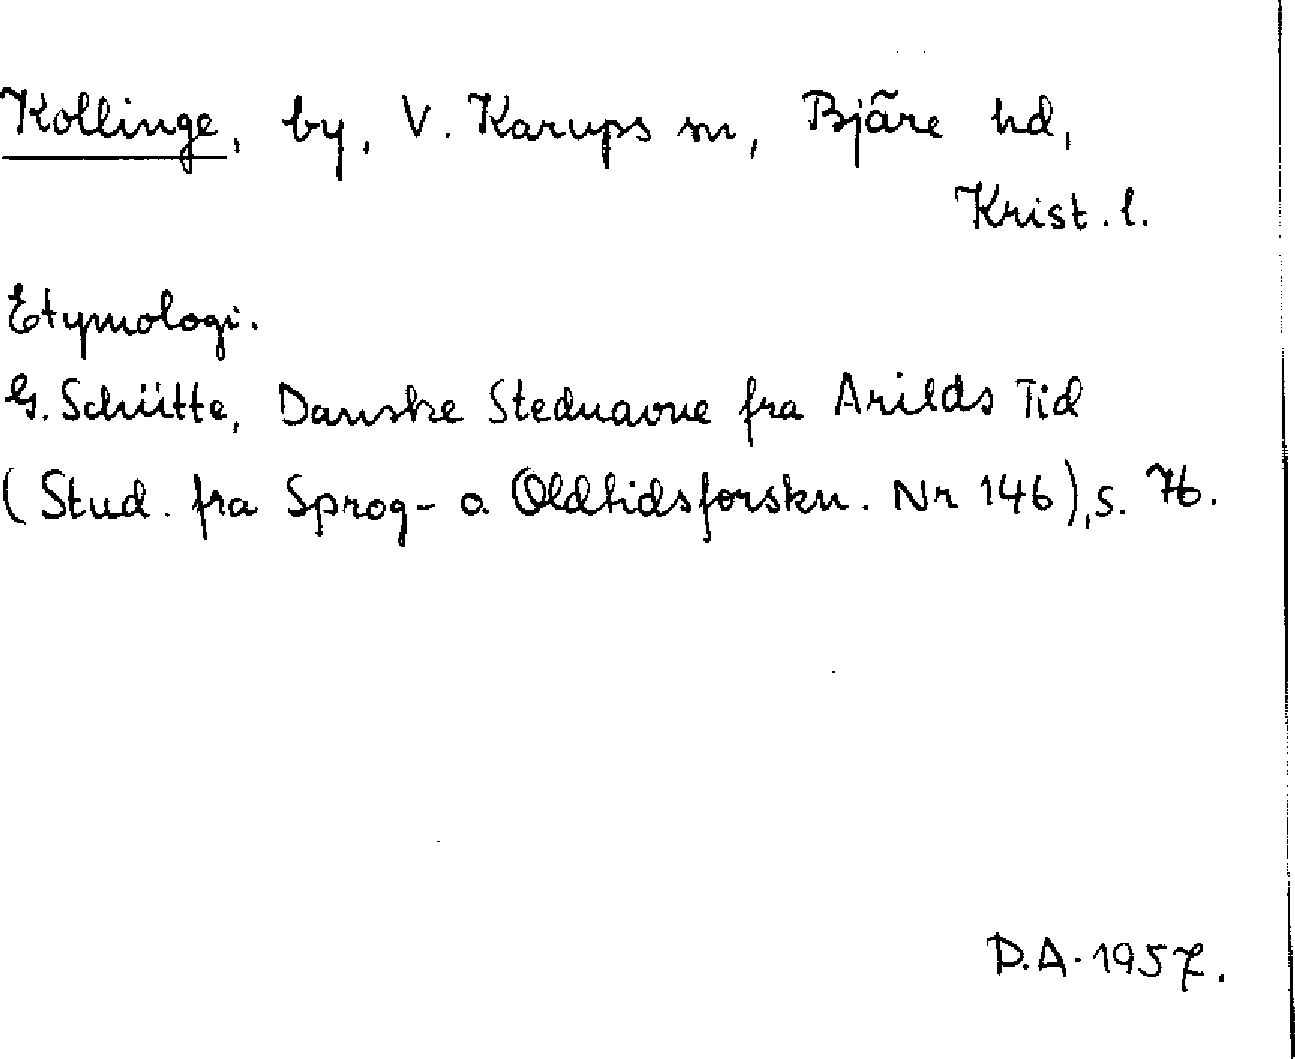 Kollinge, by, V. Karups sn, Bjäre hd,
Krist. l.
Etymologi.
G. Schütte, Danske Stednavne fra Arilds Tid
(Stud. fra Sprog- o. Oldtidsforskn. Nr 146), s. 76.
D.A. 1957.